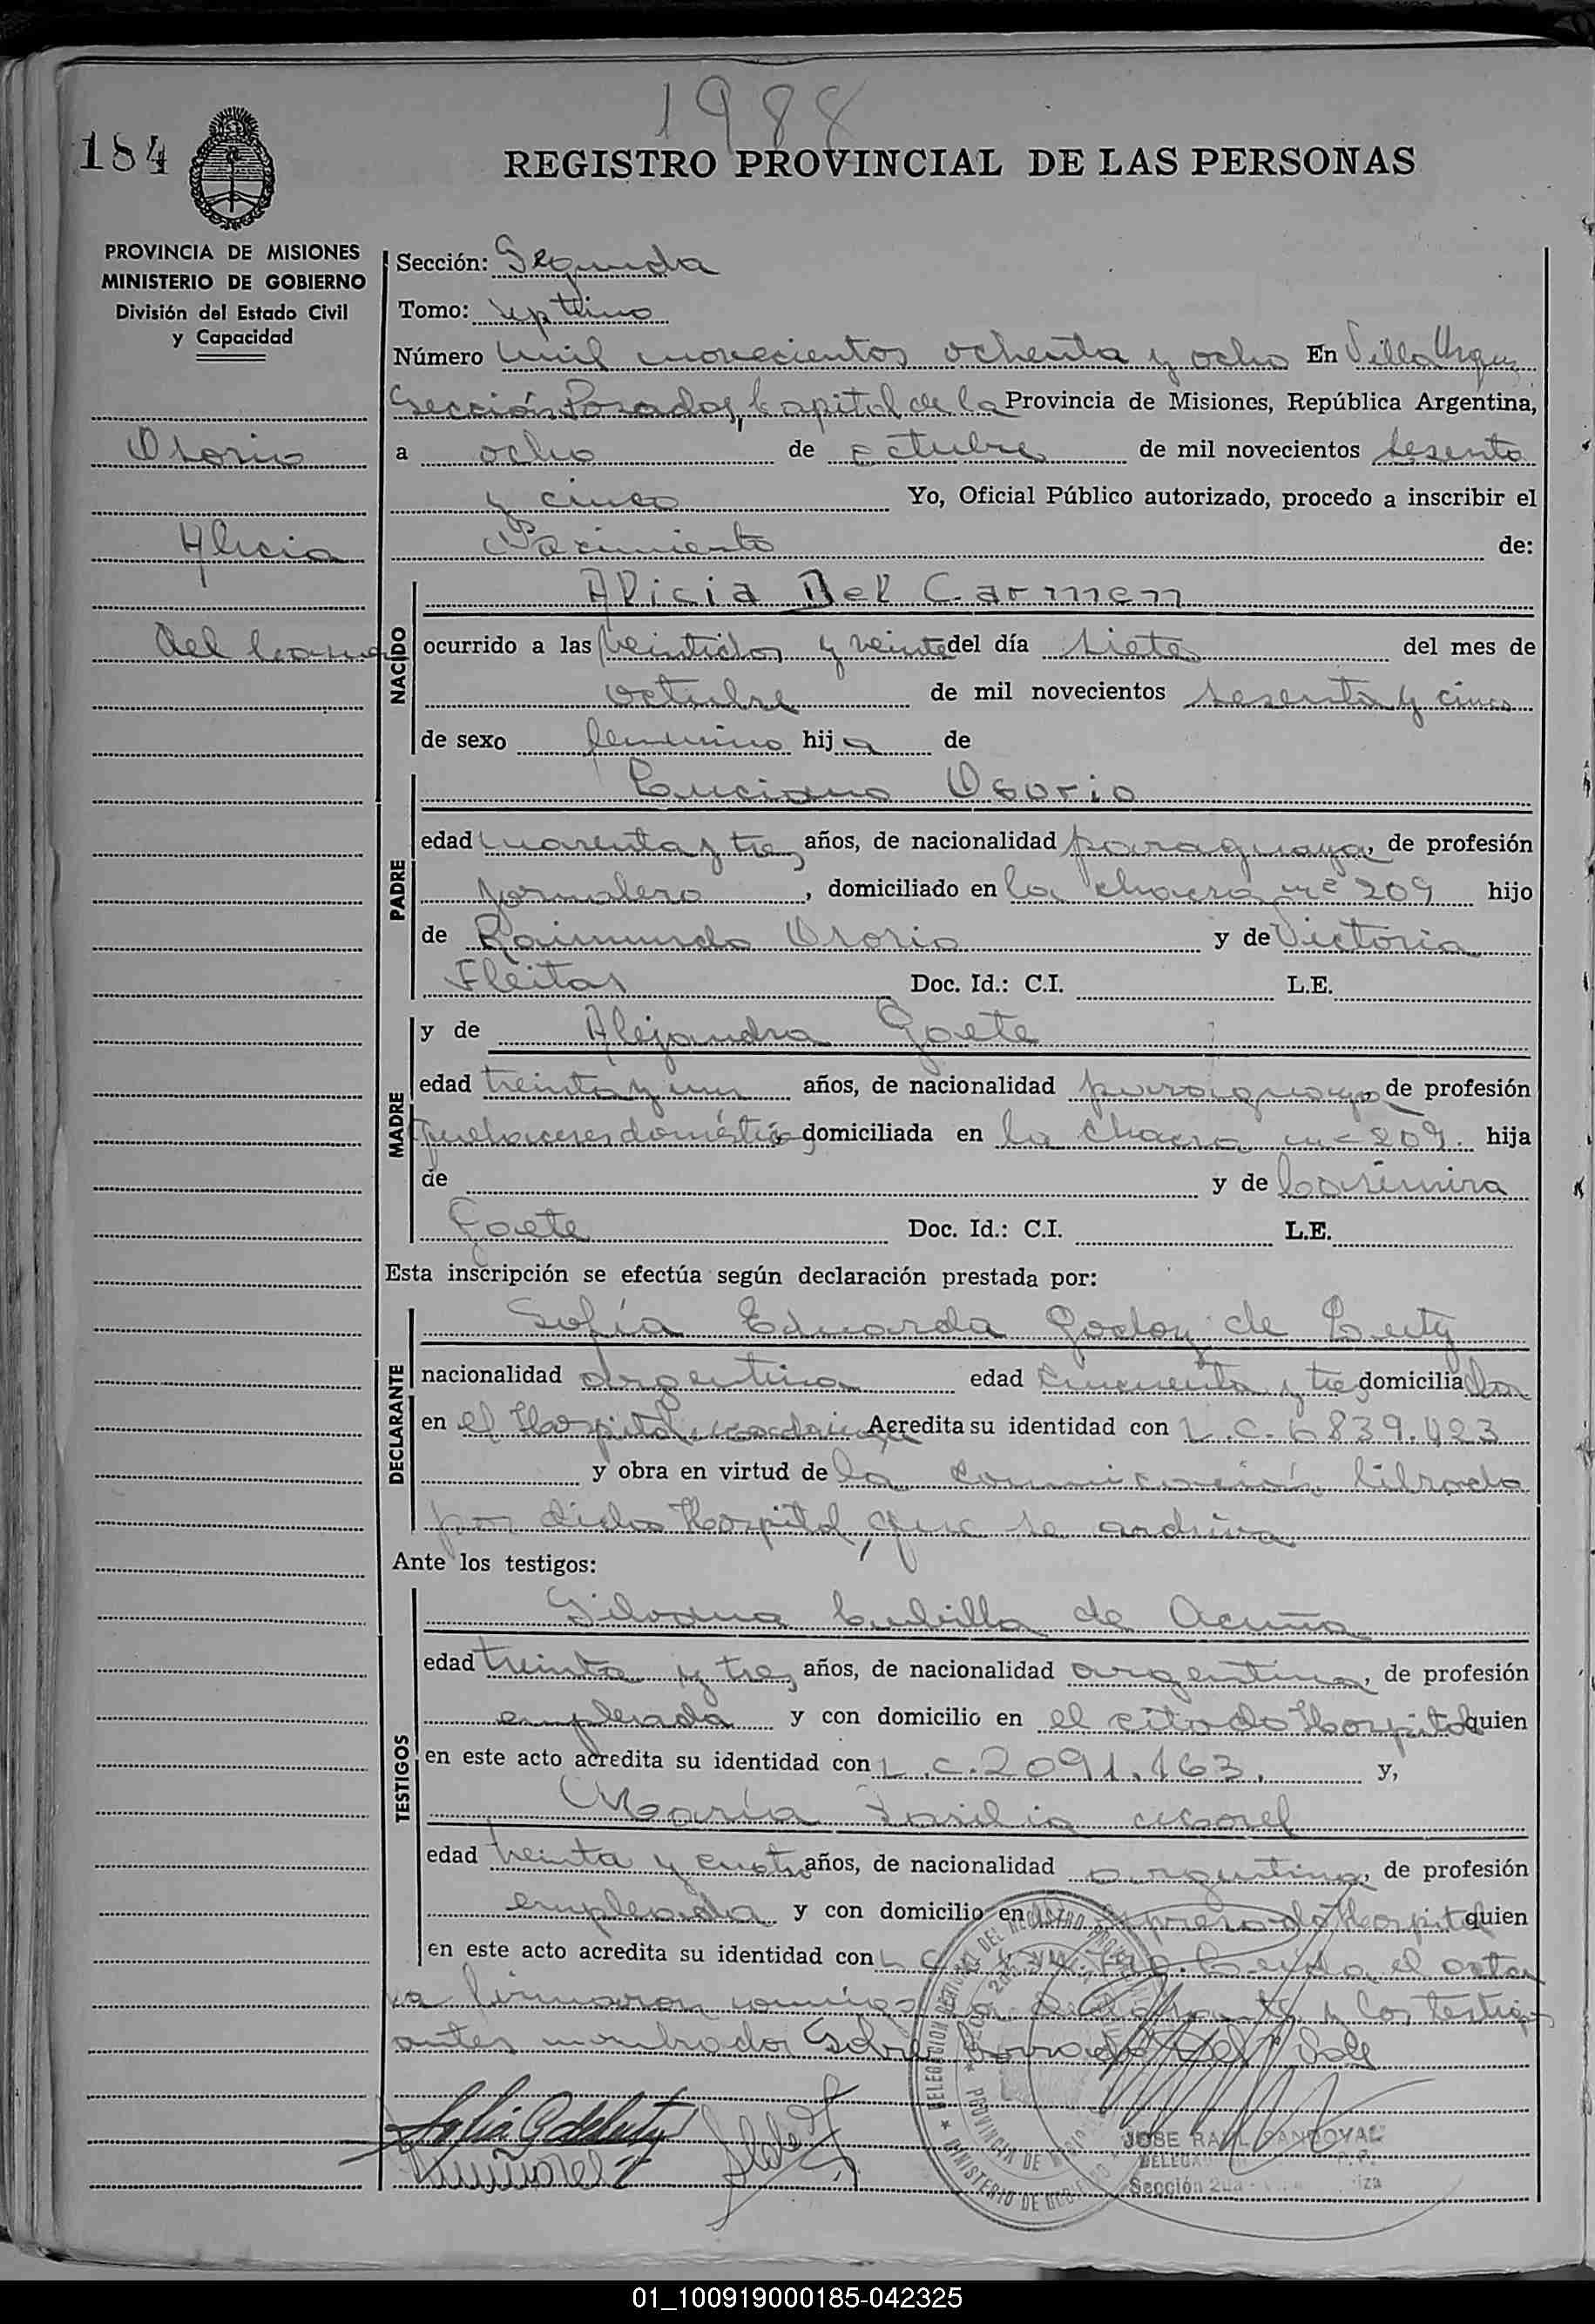 1988
184
REGISTRO PROVINCIAL DE LAS PERSONAS
PROVINCIA DE MISIONES
MINISTERIO DE GOBIERNO
División del Estado Civil
y Capacidad
Osorio
Alicia
del Carmen
Sección: Segunda
Tomo: septimo
Número mil novecientos ochenta y ocho En Villa Urquiza
Sección Posadas, Capital de la Provincia de Misiones, República Argentina,
a ocho de octubre de mil novecientos sesenta
y cinco Yo, Oficial Público autorizado, procedo a inscribir el
Nacimiento de:
NACIDO
Alicia Del Carmen
ocurrido a las veintidos y veinte del día siete del mes de
octubre de mil novecientos sesenta y cinco
de sexo femenino hija de
PADRE
Luciano Osorio
edad cuarenta y tres años, de nacionalidad paraguaya, de profesión
jornalero, domiciliado en la chacra nº 209 hijo
de Raimundo Osorio y de Victoria
Fleitas Doc. Id.: C.I. L.E.
MADRE
y de Alejandra Gaete
edad treinta y un años, de nacionalidad paraguaya, de profesión
quehaceres domésticos domiciliada en la chacra nº 209. hija
de y de Casimira
Gaete Doc. Id.: C.I. L.E.
Esta inscripción se efectúa según declaración prestada por:
DECLARANTE
Sofía Eduarda Godoy de
nacionalidad argentina edad cincuenta y tres domiciliada
en el Hospital Acredita su identidad con L.C. 6839.423
y obra en virtud de la comunicación librada
por dicho Hospital, que se archiva
Ante los testigos:
TESTIGOS
Silvana Cubilla de Acuña
edad treinta y tres años, de nacionalidad argentina, de profesión
empleada y con domicilio en el citado Hospital quien
en este acto acredita su identidad con L.C. 2091.163. y,
María
edad treinta y cuatro años, de nacionalidad argentina, de profesión
empleada y con domicilio en expresado Hospital quien
en este acto acredita su identidad con L.C. Leida el acta
la firmaron conmigo la declarante y los testigos
antes nombrados Sobre borrado
JOSE RAUL SANDOVAL
Sección 2da